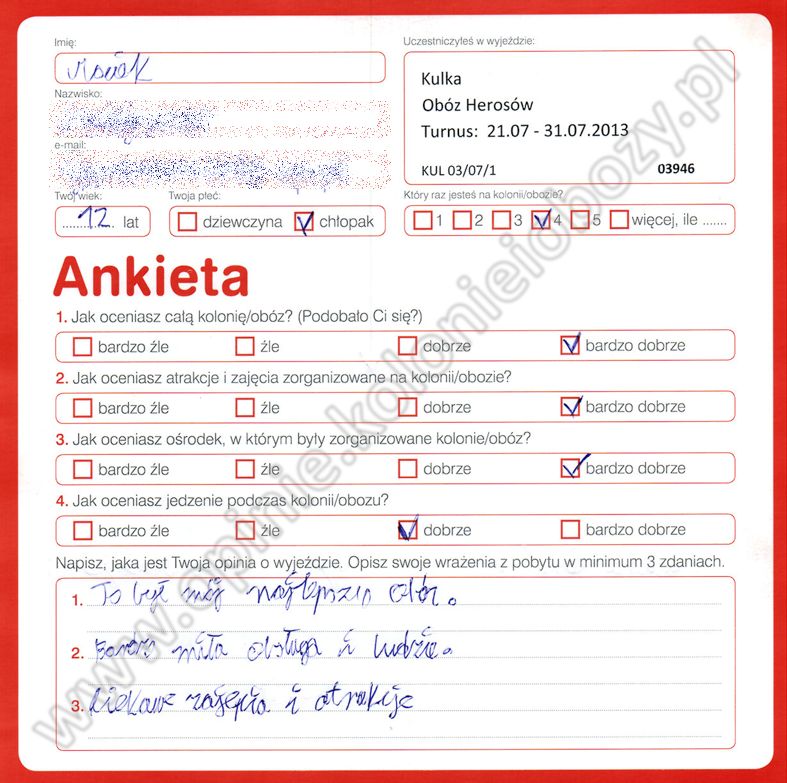 Imię:
Uczestniczyłeś w wyjeździe:
Kulka
Obóz Herosów
Turnus: 21.07 - 31.07.2013
KUL 03/07/1 03946
Nazwisko:
e-mail:
Twój wiek:
Twoja płeć:
Który raz jesteś na kolonii/obozie?
12 lat
dziewczyna chłopak
1 2 3 4 5 więcej, ile .......
Ankieta
1. Jak oceniasz całą kolonię/obóz? (Podobało Ci się?)
bardzo źle źle dobrze bardzo dobrze
2. Jak oceniasz atrakcje i zajęcia zorganizowane na kolonii/obozie?
bardzo źle źle dobrze bardzo dobrze
3. Jak oceniasz ośrodek, w którym były zorganizowane kolonie/obóz?
bardzo źle źle dobrze bardzo dobrze
4. Jak oceniasz jedzenie podczas kolonii/obozu?
bardzo źle źle dobrze bardzo dobrze
Napisz, jaka jest Twoja opinia o wyjeździe. Opisz swoje wrażenia z pobytu w minimum 3 zdaniach.
1. To był mój obóz.
2. miła obsługa i ludzie.
3. Ciekawe zajęcia i atrakcje
www.opinie.kolonieiobozy.pl